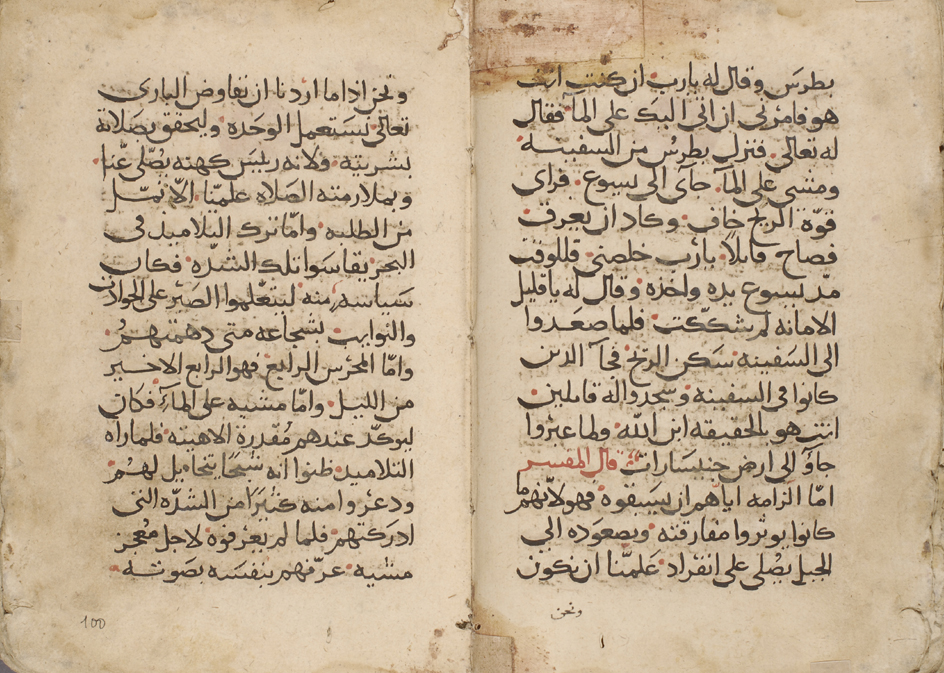 بطرس وقال له يارب ان كنت انت
هو فامرني ان اتي اليك على الما فقال
له تعالى فنزل بطرس من السفينه
ومشى على المآ جآى الى يسوع فراى
قوة الريح خاف وكاد ان يغرق
فصاح قايلاً يارب خلصني فللوقت
مدّ يسوع يده واخذه وقال له ياقليل
الامانه لم شككت فلما صعدوا
الى السفينه سكن الريح فجآ الذين
كانوا في السفينه وسجدوا له قاملين
انت هو بالحقيقه ابن الله ولما عبروا
جاوَ الى ارض جنيسارات قال المفسر
امّا الزامه اياهم ان يسبقوه فهو لانهم ما
كانوا يوثروا مفارقته وبصعوده الى
الجبل يصلى على انفراد علمّنا ان نكون
ونحن
ونحن اذا ما اردنا ان نفاوض البارى
تعالى نستعمل الوحده وليحقق بصلاته
بشريته ولانه رييس كهنه يصلى عنّا
وبملازمته الصلاه علمنا الّا نمّل
من الطلبه وامّا ترك التلاميذ في
البحر يقاسوا تلك الشدّه فكان
سياسه منه ليتعلموا الصبر على الحوادث
والنوايب بشجاعه متى دهمتهم
وامّا المحرس الرابع فهو الرابع الاخير
من الليل وامّا مشيه على المآء فكان
ليوكد عندهم مقدرة الاهيته فلما راه
التلاميد ظنوا انه شبحًا يتخايل لهم
ودعروا منه كثيرًا من الشدّه التى
ادركتهم فلما لم يعرفوه لاجل معجز
مشيه عرّفهم بنفسه بصوته
100